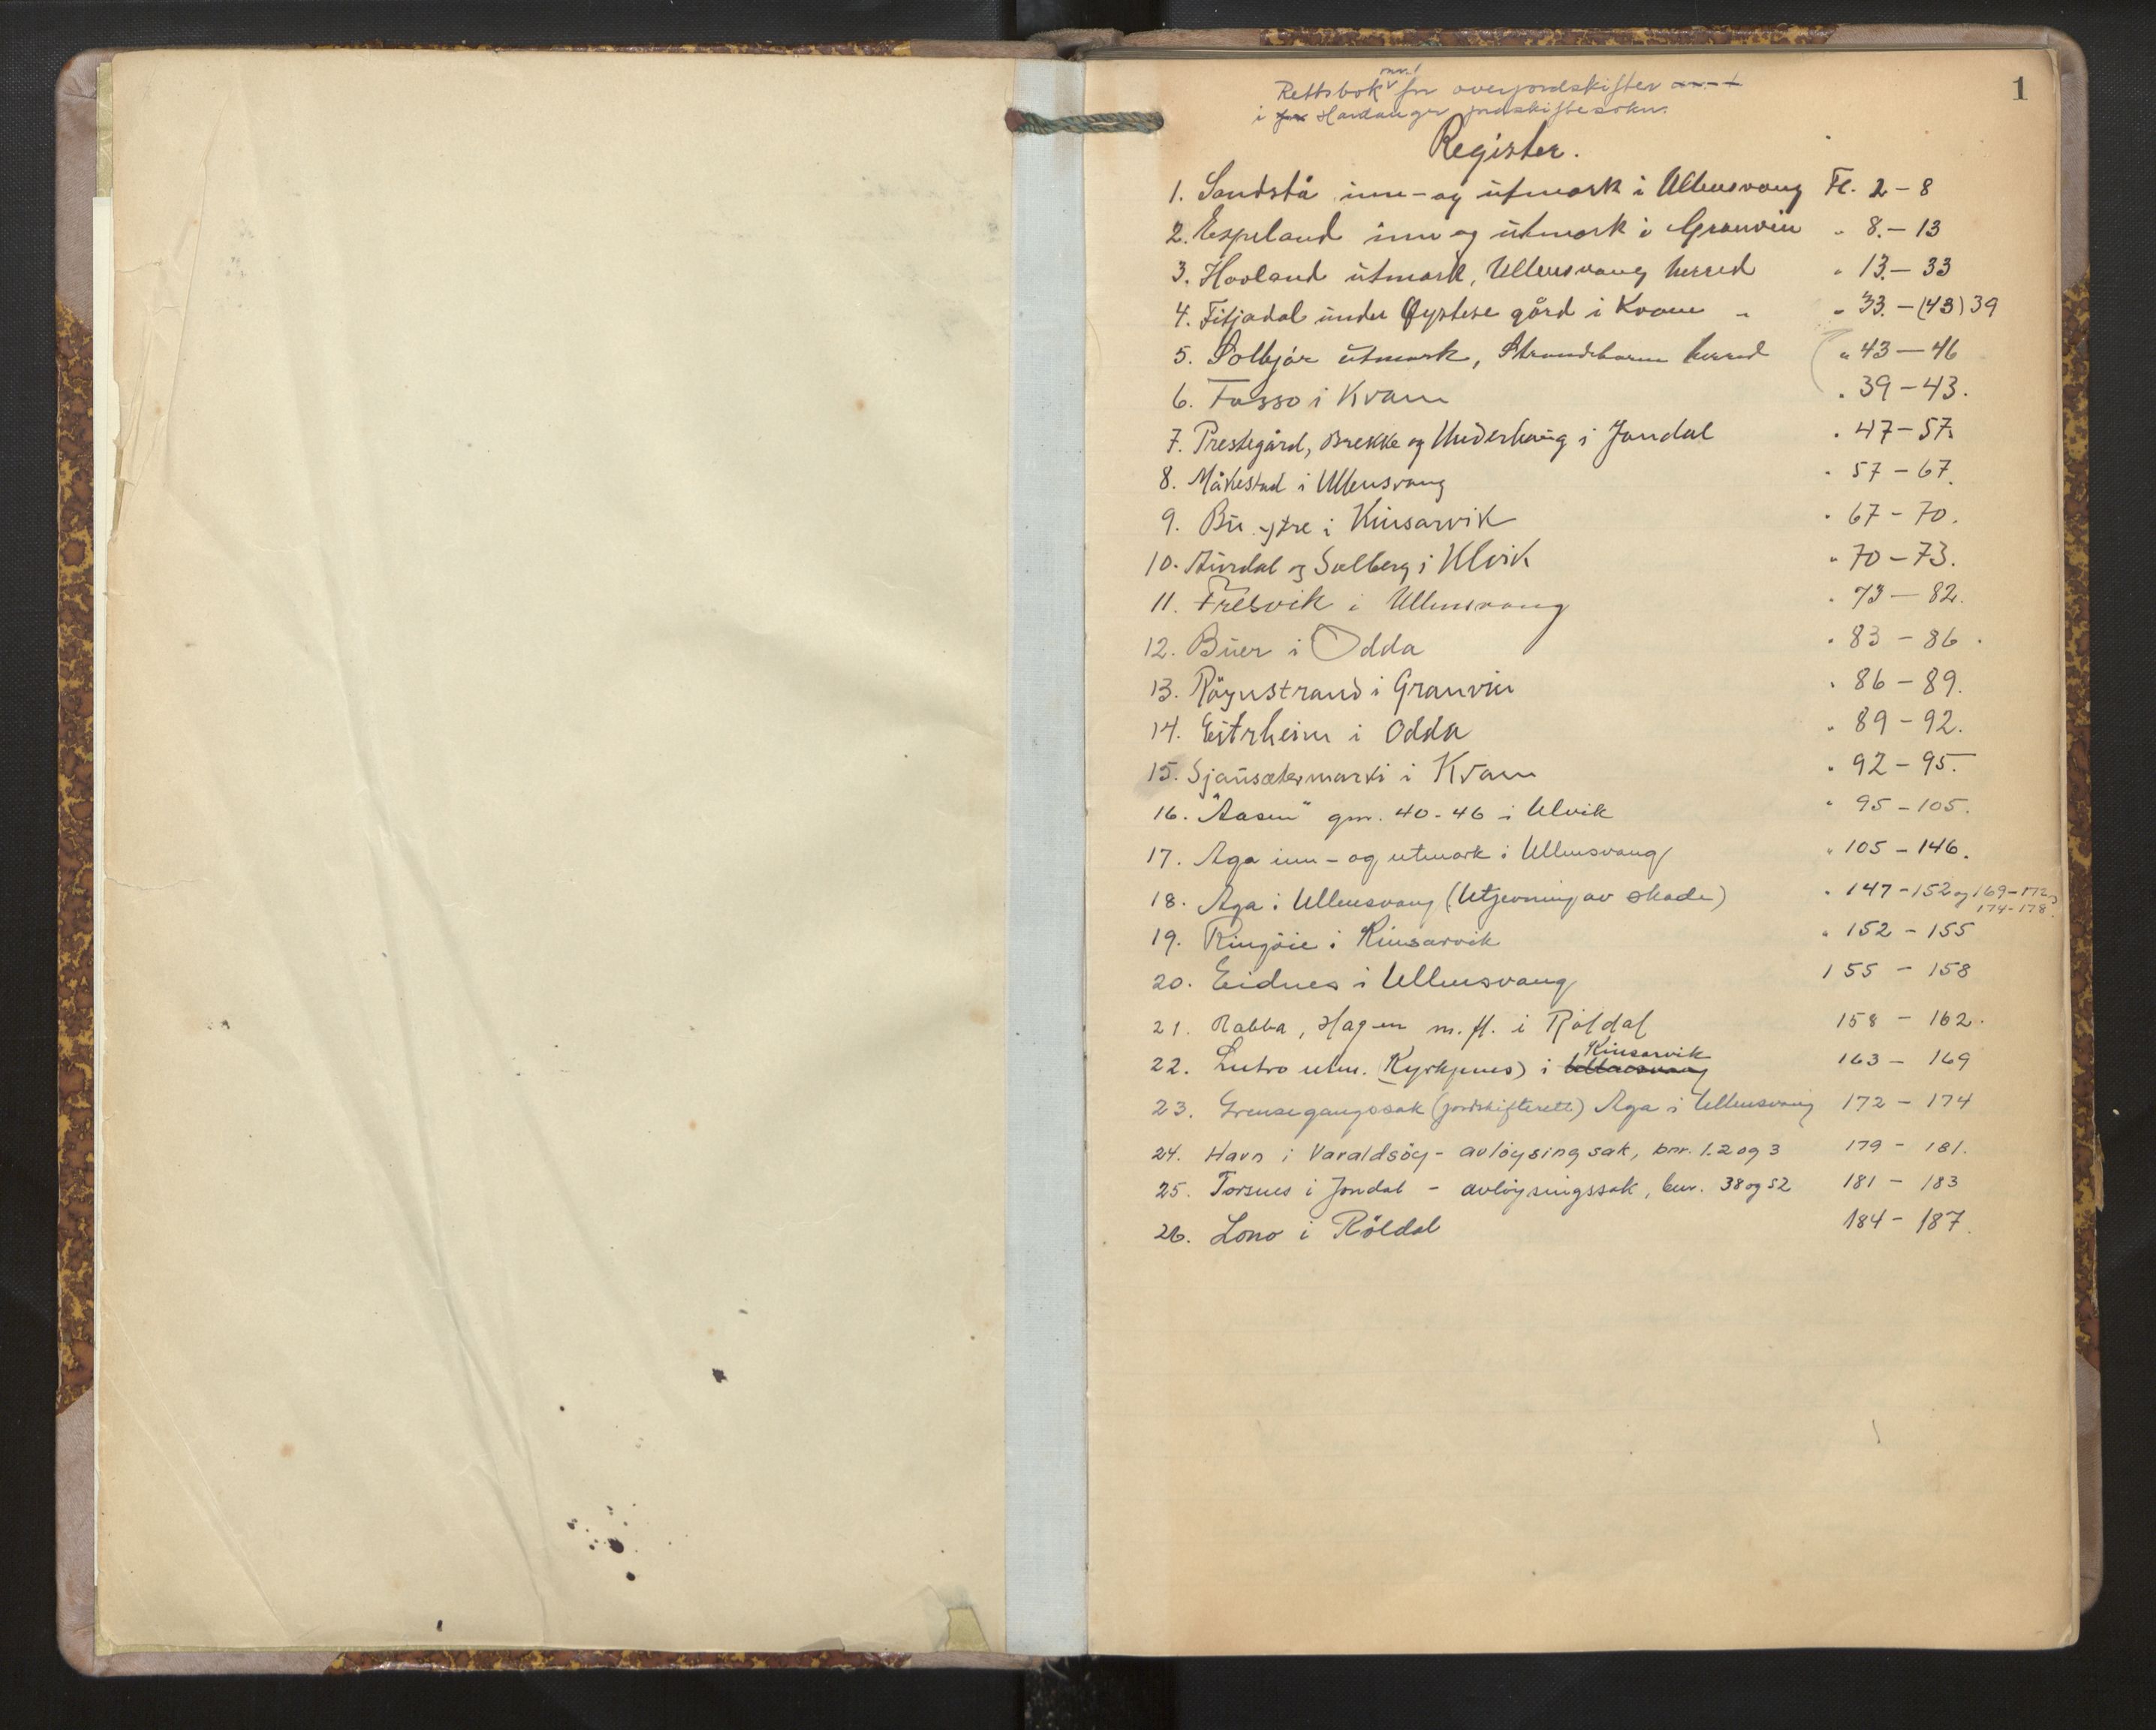 1
Rettsbok nr. 1 for overjordskifter
i Hardanger jordskiftesokn.
Register.
1. Sandstå inn- og utmark i Ullensvang Fl. 2 - 8
2. Espeland inn og utmark i Granvin " 8. - 13
3. Hovland utmark, Ullensvang herred " 13. - 33
4. Fitjadal under Øystese gård i Kvam " " 33. - (43) 39
5. Solbjør utmark, Strandebarm herred " 43 - 46
6. Fosso i Kvam " 39 - 43.
7. Prestegård, Brekke og Underhaug i Jondal " 47 - 57.
8. Måkestad i Ullensvang " 57 - 67.
9. Bu ytre i Kinsarvik " 67 - 70.
10. Aurdal og Solberg i Ulvik " 70 - 73.
11. Fresvik i Ullensvang " 73 - 82.
12. Buer i Odda " 83 - 86.
13. Röynstrand i Granvin " 86 - 89.
14. Eitrheim i Odda " 89 - 92.
15. Sjausætermarki i Kvam " 92 - 95.
16. "Aasen" gnr. 40-46 i Ulvik " 95 - 105.
17. Aga inn- og utmark i Ullensvang " 105 - 146.
18. Aga i Ullensvang (Utjevning av skade) " 147 - 152 og 169 - 172 og
174 - 178.
19. Ringöie i Kinsarvik " 152 - 155
20. Eidnes i Ullensvang 155 - 158
21. Rabba, Hagen m.fl. i Röldal 158 - 162.
22. Lutro utm. (Kyrkjenes) i Ullensvang Kinsarvik 163 - 169
23. Grensegangssak (jordskifterett) Aga i Ullensvang 172 - 174
24. Havn i Varaldsöy - avlöysing sak, bnr. 1.2 og 3 179 - 181.
25. Torsnes i Jondal - avlöysingssak, bnr. 38 og 52 181 - 183
26. Lono i Röldal 184 - 187.